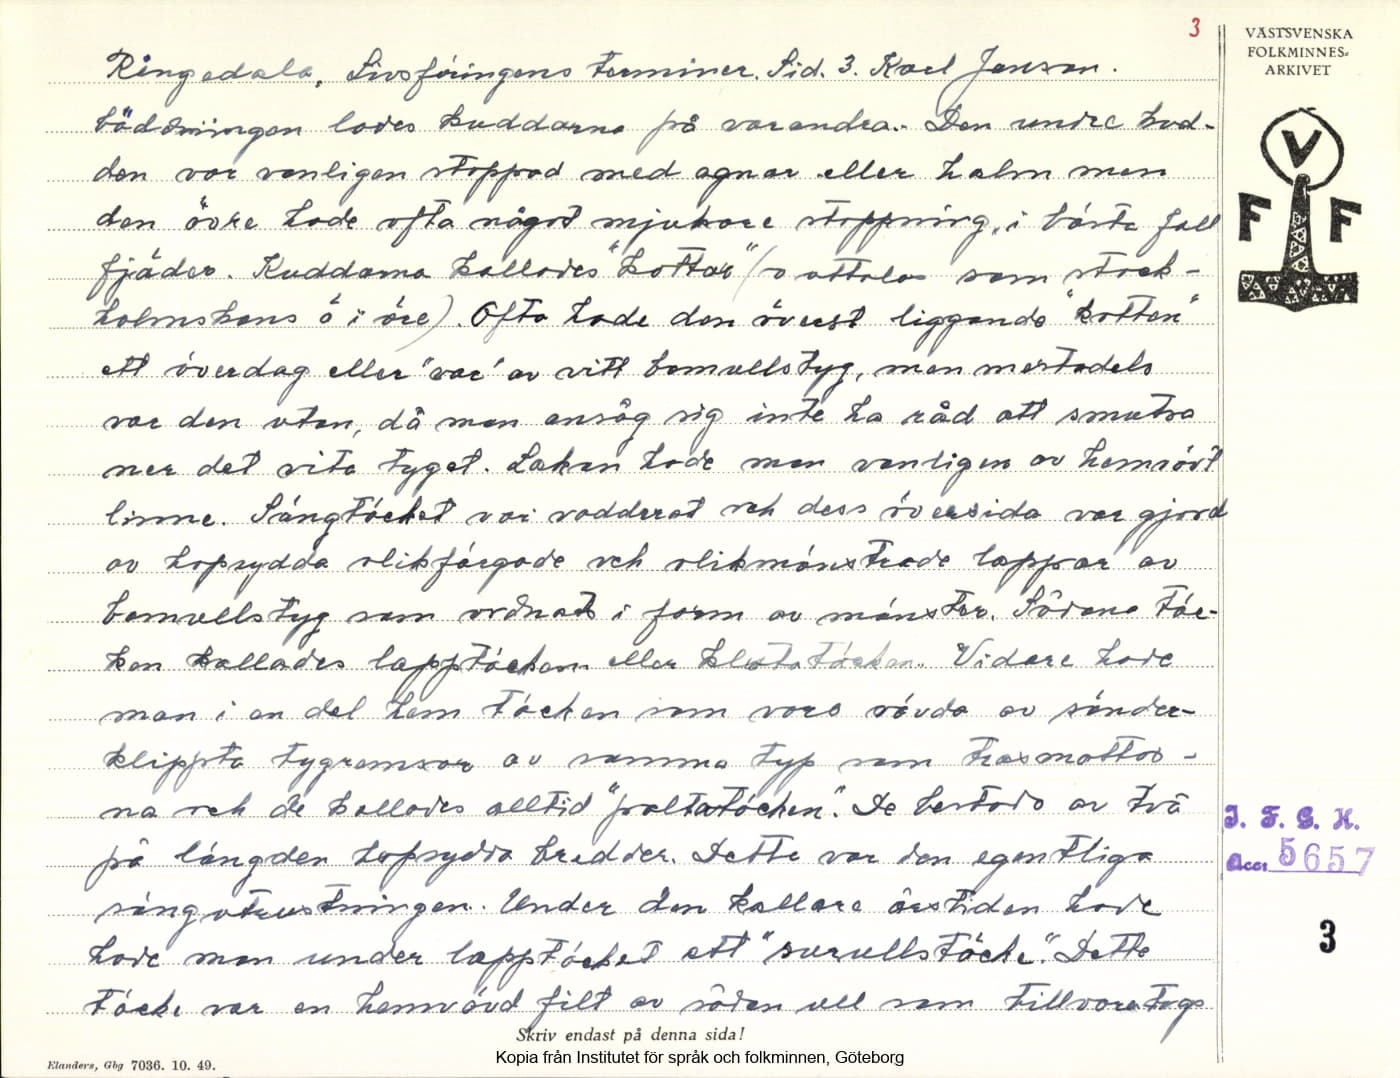 3
VÄSTSVENSKA
FOLKMINNES-
ARKIVET
V
F F
Ringedala, Livsföringens termineer. Sid. 3. Karl Janson.
bäddningen lades kuddarna på varandra. Den undre kud-
den var vanligen stoppad med agnar eller halm men
den övre hade ofta något mjukare stoppning, i bästa fall
fjäder. Kuddarna kallades "kottar" (o uttalas som stock-
holmskans ö i öre). Ofta hade den överst liggande "kotten"
ett överdag eller "var" av vitt bomullstyg, men mestadels
var den utan, då man ansåg sig inte ha råd att smutsa
ner det vita tyget. Lakan hade man vanligen av hemvävt
linne. Sängtäcket var vadderat och dess översida var gjord
av hopsydda olikfärgade och olikmönstrade lappar av
bomullstyg som ordnats i form av mönster. Sådana täc-
ken kallades lapptäcken eller klutatäcken. Vidare hade
man i en del hem täcken som voro vävda av sönder-
klippta tygremsor av samma typ som trasmattor-
na och de kallades alltid "paltatäcken". De bestodo av två
på längden hopsydda bredder. Detta var den egentliga
sängutrustningen. Under den kallare årstiden hade
hade man under lapptäcket ett "surullstäcke". Detta
täcke var en hemvävd filt av sådan ull som tillvaratogs
I. F. G. H.
Acc: 5657
3
Skriv endast på denna sida!
Kopia från Institutet för språk och folkminnen, Göteborg
Elanders, Gbg 7036. 10. 49.